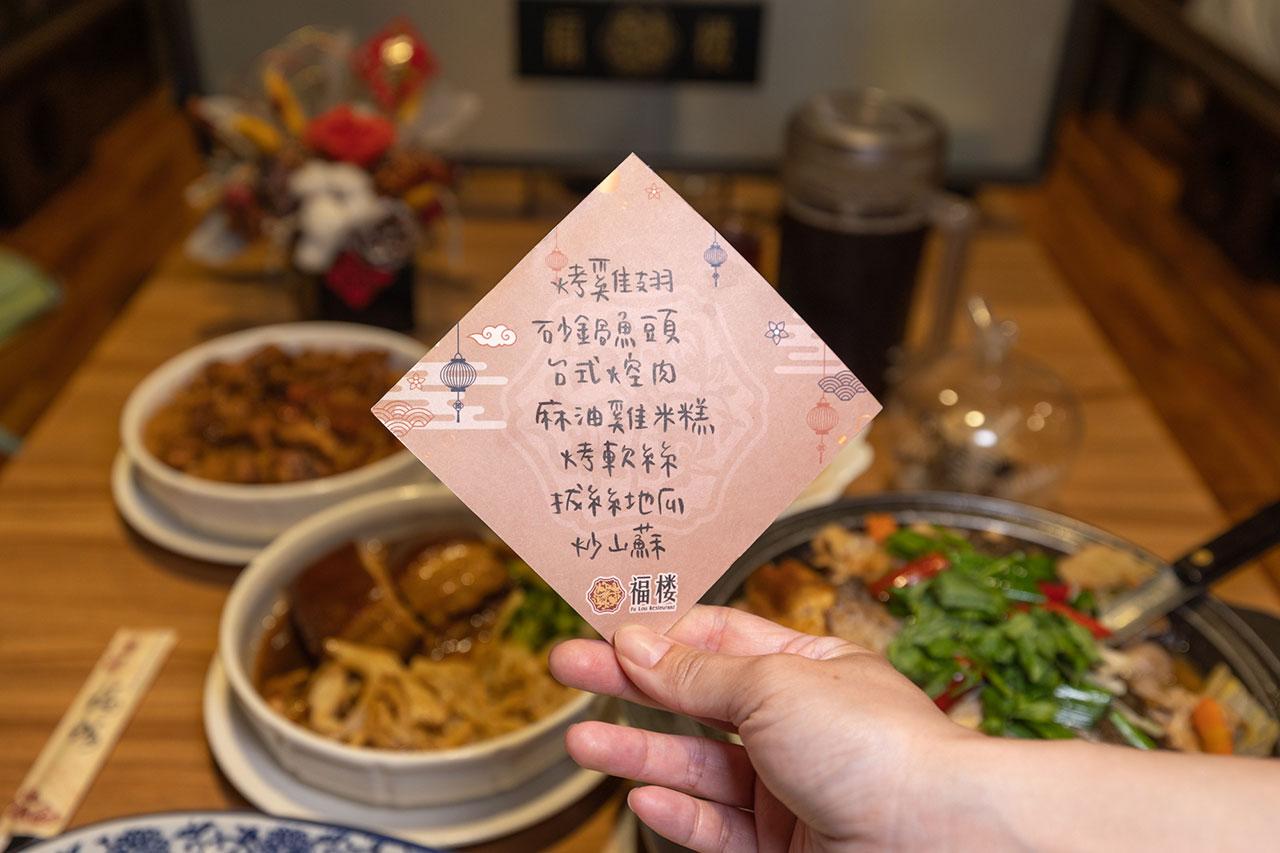 福 楼
烤雞雞翅
砂鍋魚頭
台式焢肉
麻油雞米糕
烤軟絲
拔絲地瓜
炒山蘇
福楼
Fu Lou Restaurant